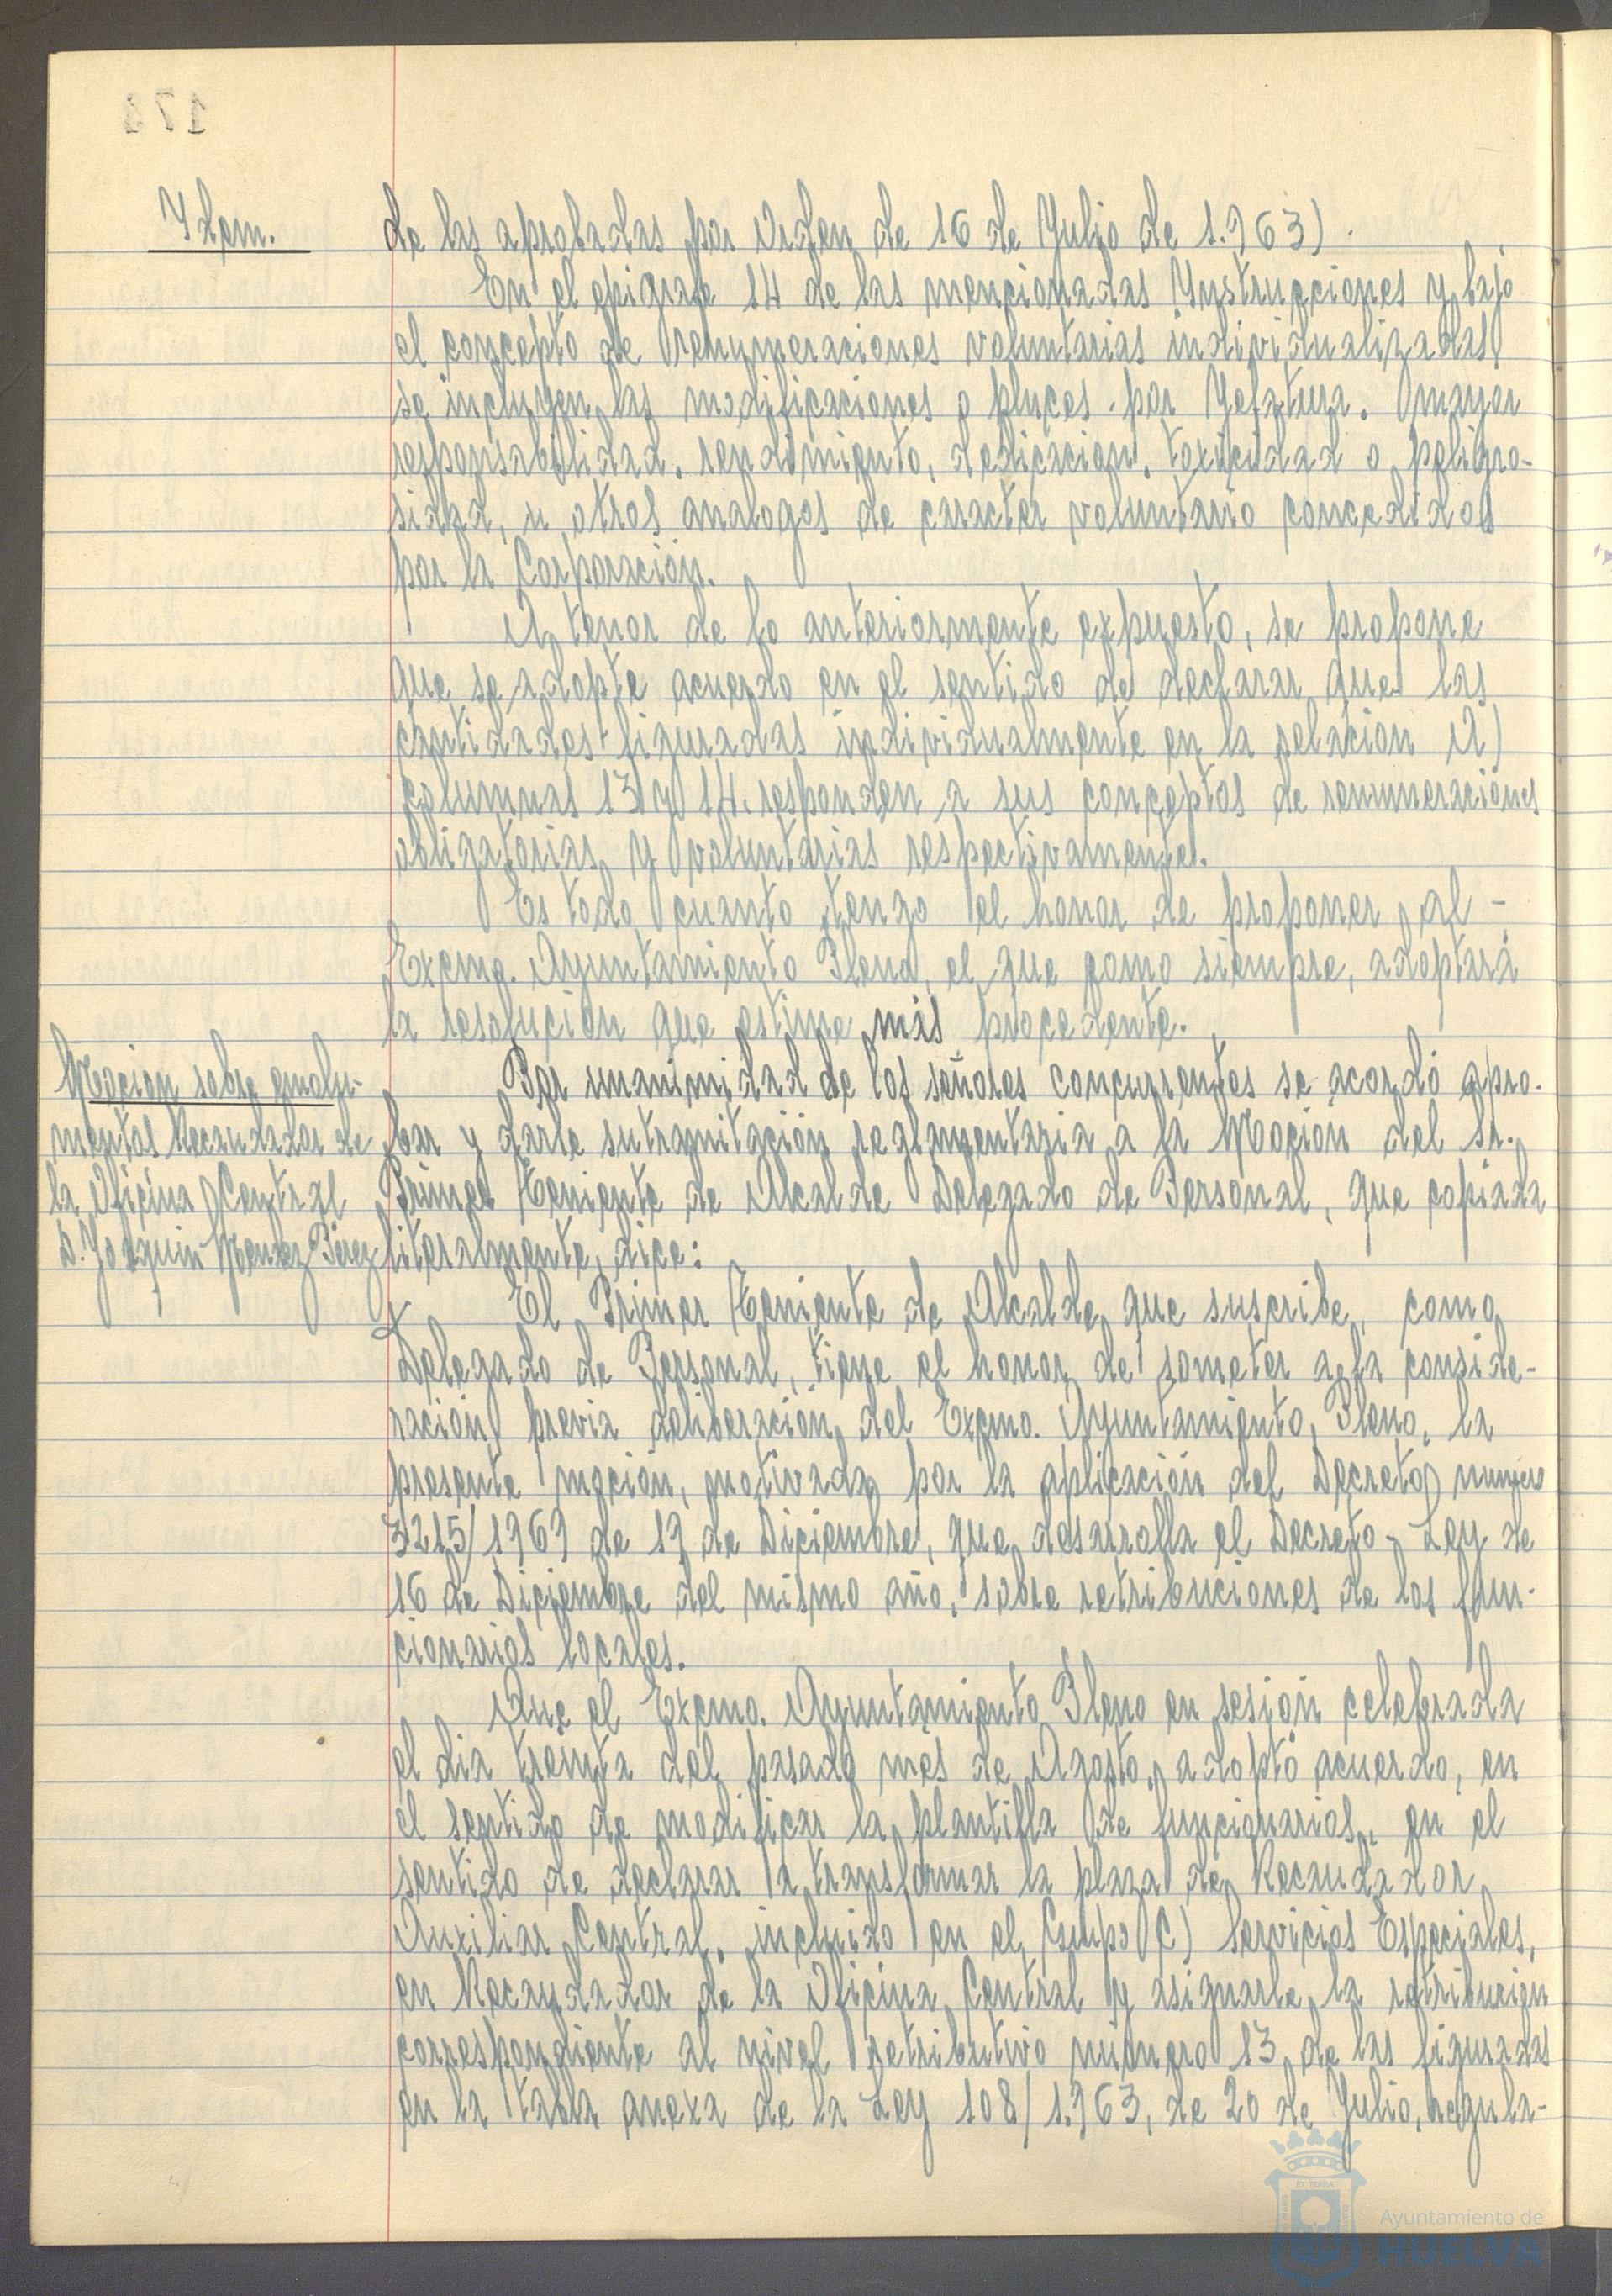 174
Idem.
de las aprobadas por Orden de 16 de Julio de 1.963).
En el epigrafe 14 de las mencionadas Instrucciones y bajo
el concepto de remuneraciones voluntarias individualizadas
se incluyen las modificaciones o pluces por Jefatura. mayor
responsabilidad. rendimiento, dedicación, toxicidad o peligro-
sidad, u otros analogos de caracter voluntario concedidos
por la Corporación.
A tenor de lo anteriormente expuesto, se propone
que se adopte acuerdo en el sentido de declarar que las
cantidades figuradas individualmente en la relacion A)
columnas 13 y 14. responden a sus conceptos de remuneraciones
obligatorias y voluntarias respectivamente.
Es todo cuanto tengo el honor de proponer al -
Excmo. Ayuntamiento Pleno, el que como siempre, adoptará
la resolución que estime más procedente.
Moción sobre emolu-
mentos Recaudador de
la Oficina Central
D. Joaquin Mendez Perez
Por unanimidad de los señores concurrentes se acordó apro-
bar y darle su tramitación reglamentaria a la Moción del Sr.
Primer Teniente de Alcalde Delegado de Personal, que copiada
literalmente, dice:
El Primer Teniente de Alcalde que suscribe, como
Delegado de Personal, tiene el honor de someter a la conside-
ración previa deliberación del Excmo. Ayuntamiento Pleno, la
presente moción, motivada por la aplicación del Decreto numero
3215/1969 de 19 de Diciembre, que desarrolla el Decreto - Ley de
16 de Diciembre del mismo año, sobre retribuciones de los fun-
cionarios locales.
Que el Excmo. Ayuntamiento Pleno en sesión celebrada
el dia treinta del pasado mes de Agosto, adoptó acuerdo, en
el sentido de modificar la plantilla de funcionarios, en el
sentido de declarar a transformar la plaza de Recaudador
Auxiliar Central, incluido en el Grupo C) Servicios Especiales,
en Recaudador de la Oficina Central y asignarle la retribucion
correspondiente al nivel retributivo número 13 de las figuradas
en la tabla anexa de la Ley 108/1.963, de 20 de Julio, regula-
Ayuntamiento de
HUELVA